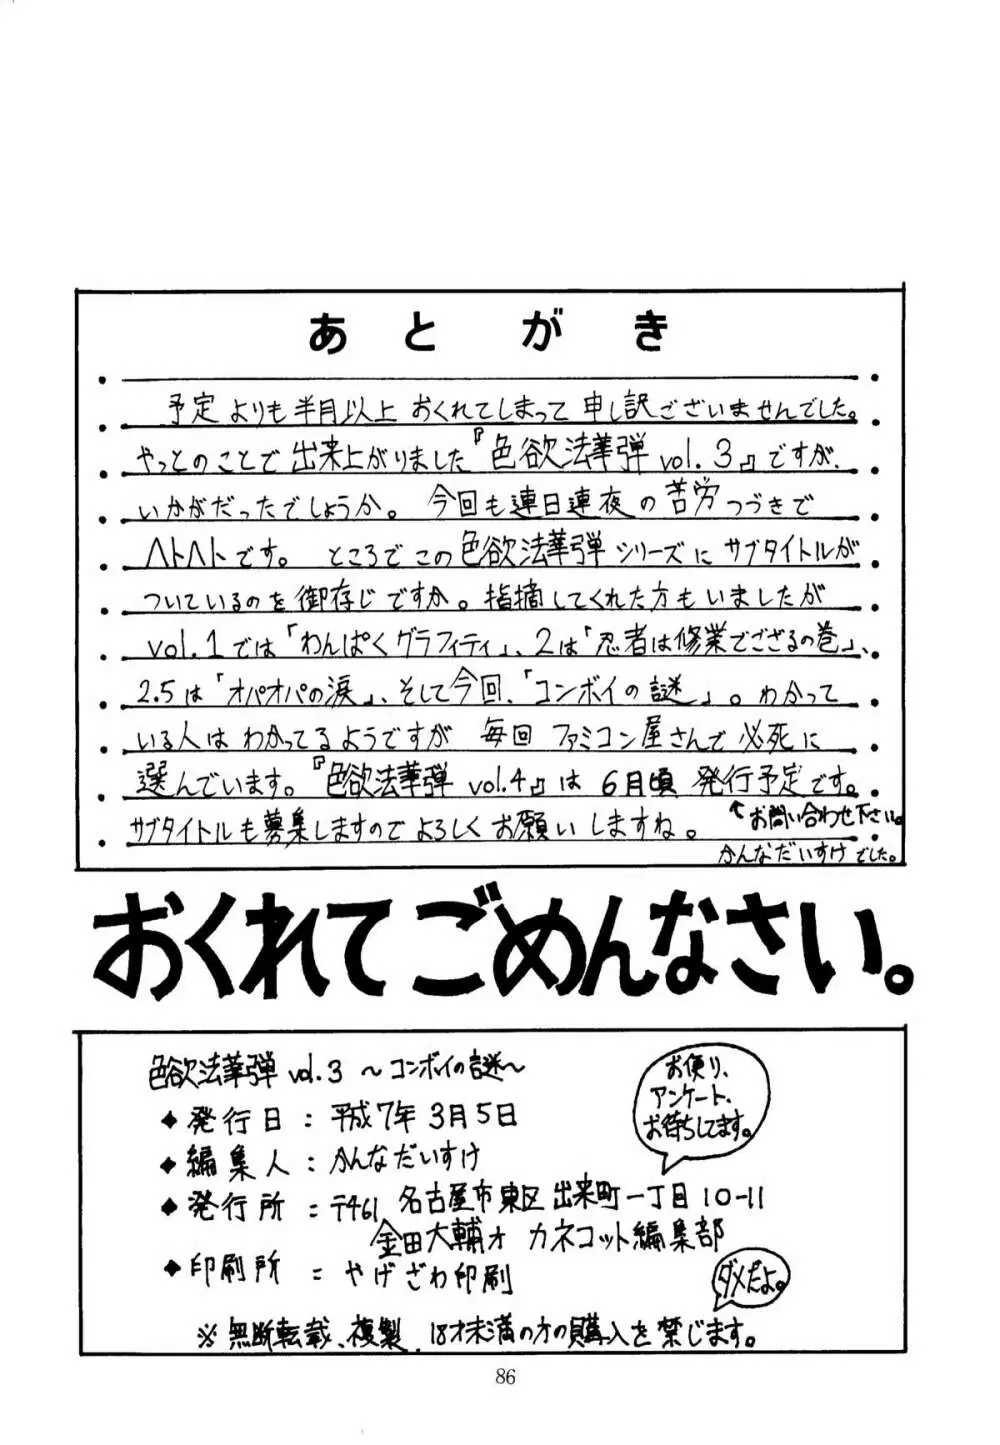 あとがき
予定よりも半月以上おくれてしまって申し訳ございませんでした。
やっとのことで出来上がりました『色欲法華弾vol.3』ですが、
いかがだったでしょうか。今回も連日連夜の苦労つづきで
ヘトヘトです。ところでこの色欲法華弾シリーズにサブタイトルが
ついているのを御存じですか。指摘してくれた方もいましたが
vol.1では「わんぱくグラフィティ」、2は「忍者は修業でござるの巻」、
2.5は「オパオパの涙」、そして今回、「コンボイの謎」。わかって
いる人はわかってるようですが毎回ファミコン屋さんで必死に
選んでいます。『色欲法華弾vol.4』は6月頃発行予定です。
サブタイトルも募集しますのでよろしくお願いしますね。
↑お問い合わせ下さい。
かんなだいすけでした。
おくれてごめんなさい。
色欲法華弾vol.3 ～コンボイの謎～
◆発行日：平成7年3月5日
◆編集人：かんなだいすけ
◆発行所：〒461 名古屋市東区出来町一丁目10-11
金田大輔方 カネコット編集部
◆印刷所：やげざわ印刷
※無断転載、複製、18才未満の方の購入を禁じます。
お便り、
アンケート、
お待ちしてます。
ダメだよ。
86